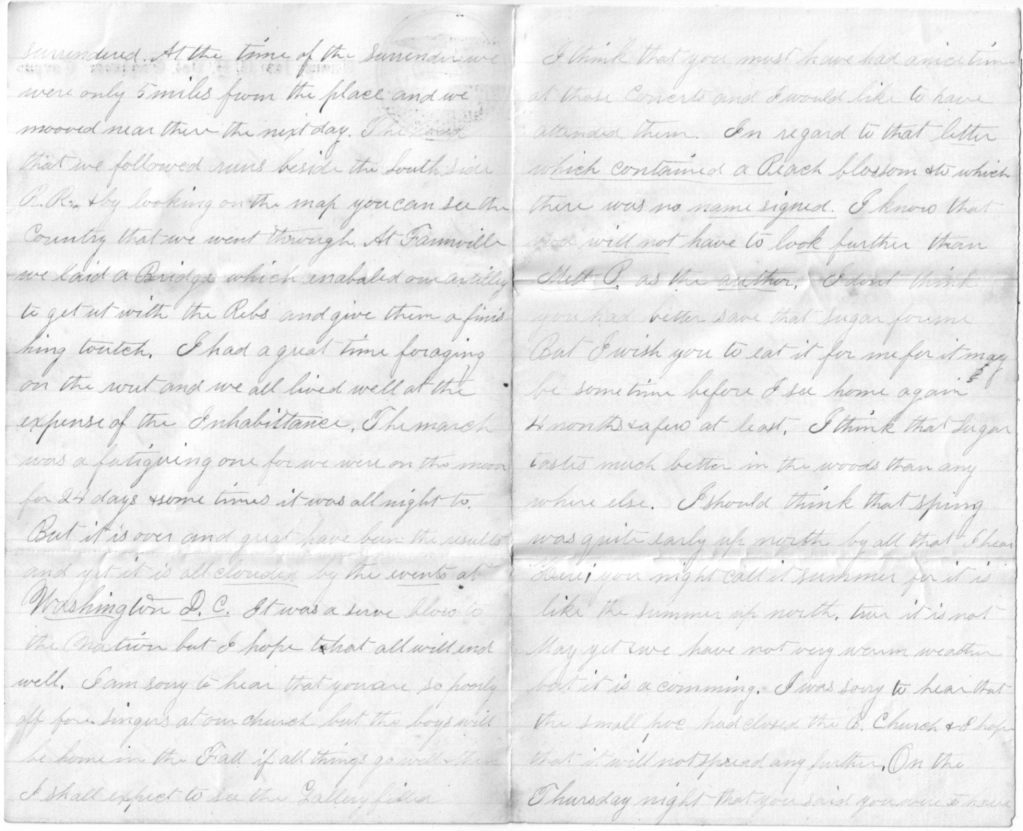 surrendered. At the time of the surrender we
were only 5 miles from the place and we
mooved near there the next day. The road
that we followed runs beside the South side
R.R. & by looking on the map you can see the
Country that we went through. At Farmville
we laid a Bridge which enabaled our artillery
to get at with the Rebs and give them a finis
hing toutch. I had a great time foraging
on the rout and we all lived well at the
expense of the Inhabittance. The march
was a fatigueing one for we were on the move
for 24 days & some times it was all night to.
But it is over and great have been the results
and yet it is all clouded by the events at
Washington D.C. It was a serve blow to
the Nation but I hope that all will end
well. I am sorry to hear that you are so poorly
off for singers at our church but the boys will
be home in the Fall if all things go well then
I shall expect to see the Gallery filled
I think that you must have had a nice time
at those Concerts and I would like to have
attended them. In regard to that letter
which contained a Peach blossom & to which
there was no name signed. I know that
you will not have to look further than
P. as the auther. I dont think
you had better save that sugar for me
But I wish you to eat it for me for it may
be sometime before I see home again
4 months & a few at least. I think that Sugar
tastes much better in the woods than any
where else. I should think that spring
was quite early up north by all that I hear
Here, you might call it summer for it is
like the summer up north. true it is not
May yet & we have not very warm weather
but it is a comming. I was sorry to hear that
the small pox had closed the Church & I hope
that it will not spread any further. On the
Thursday night that you said you were to have